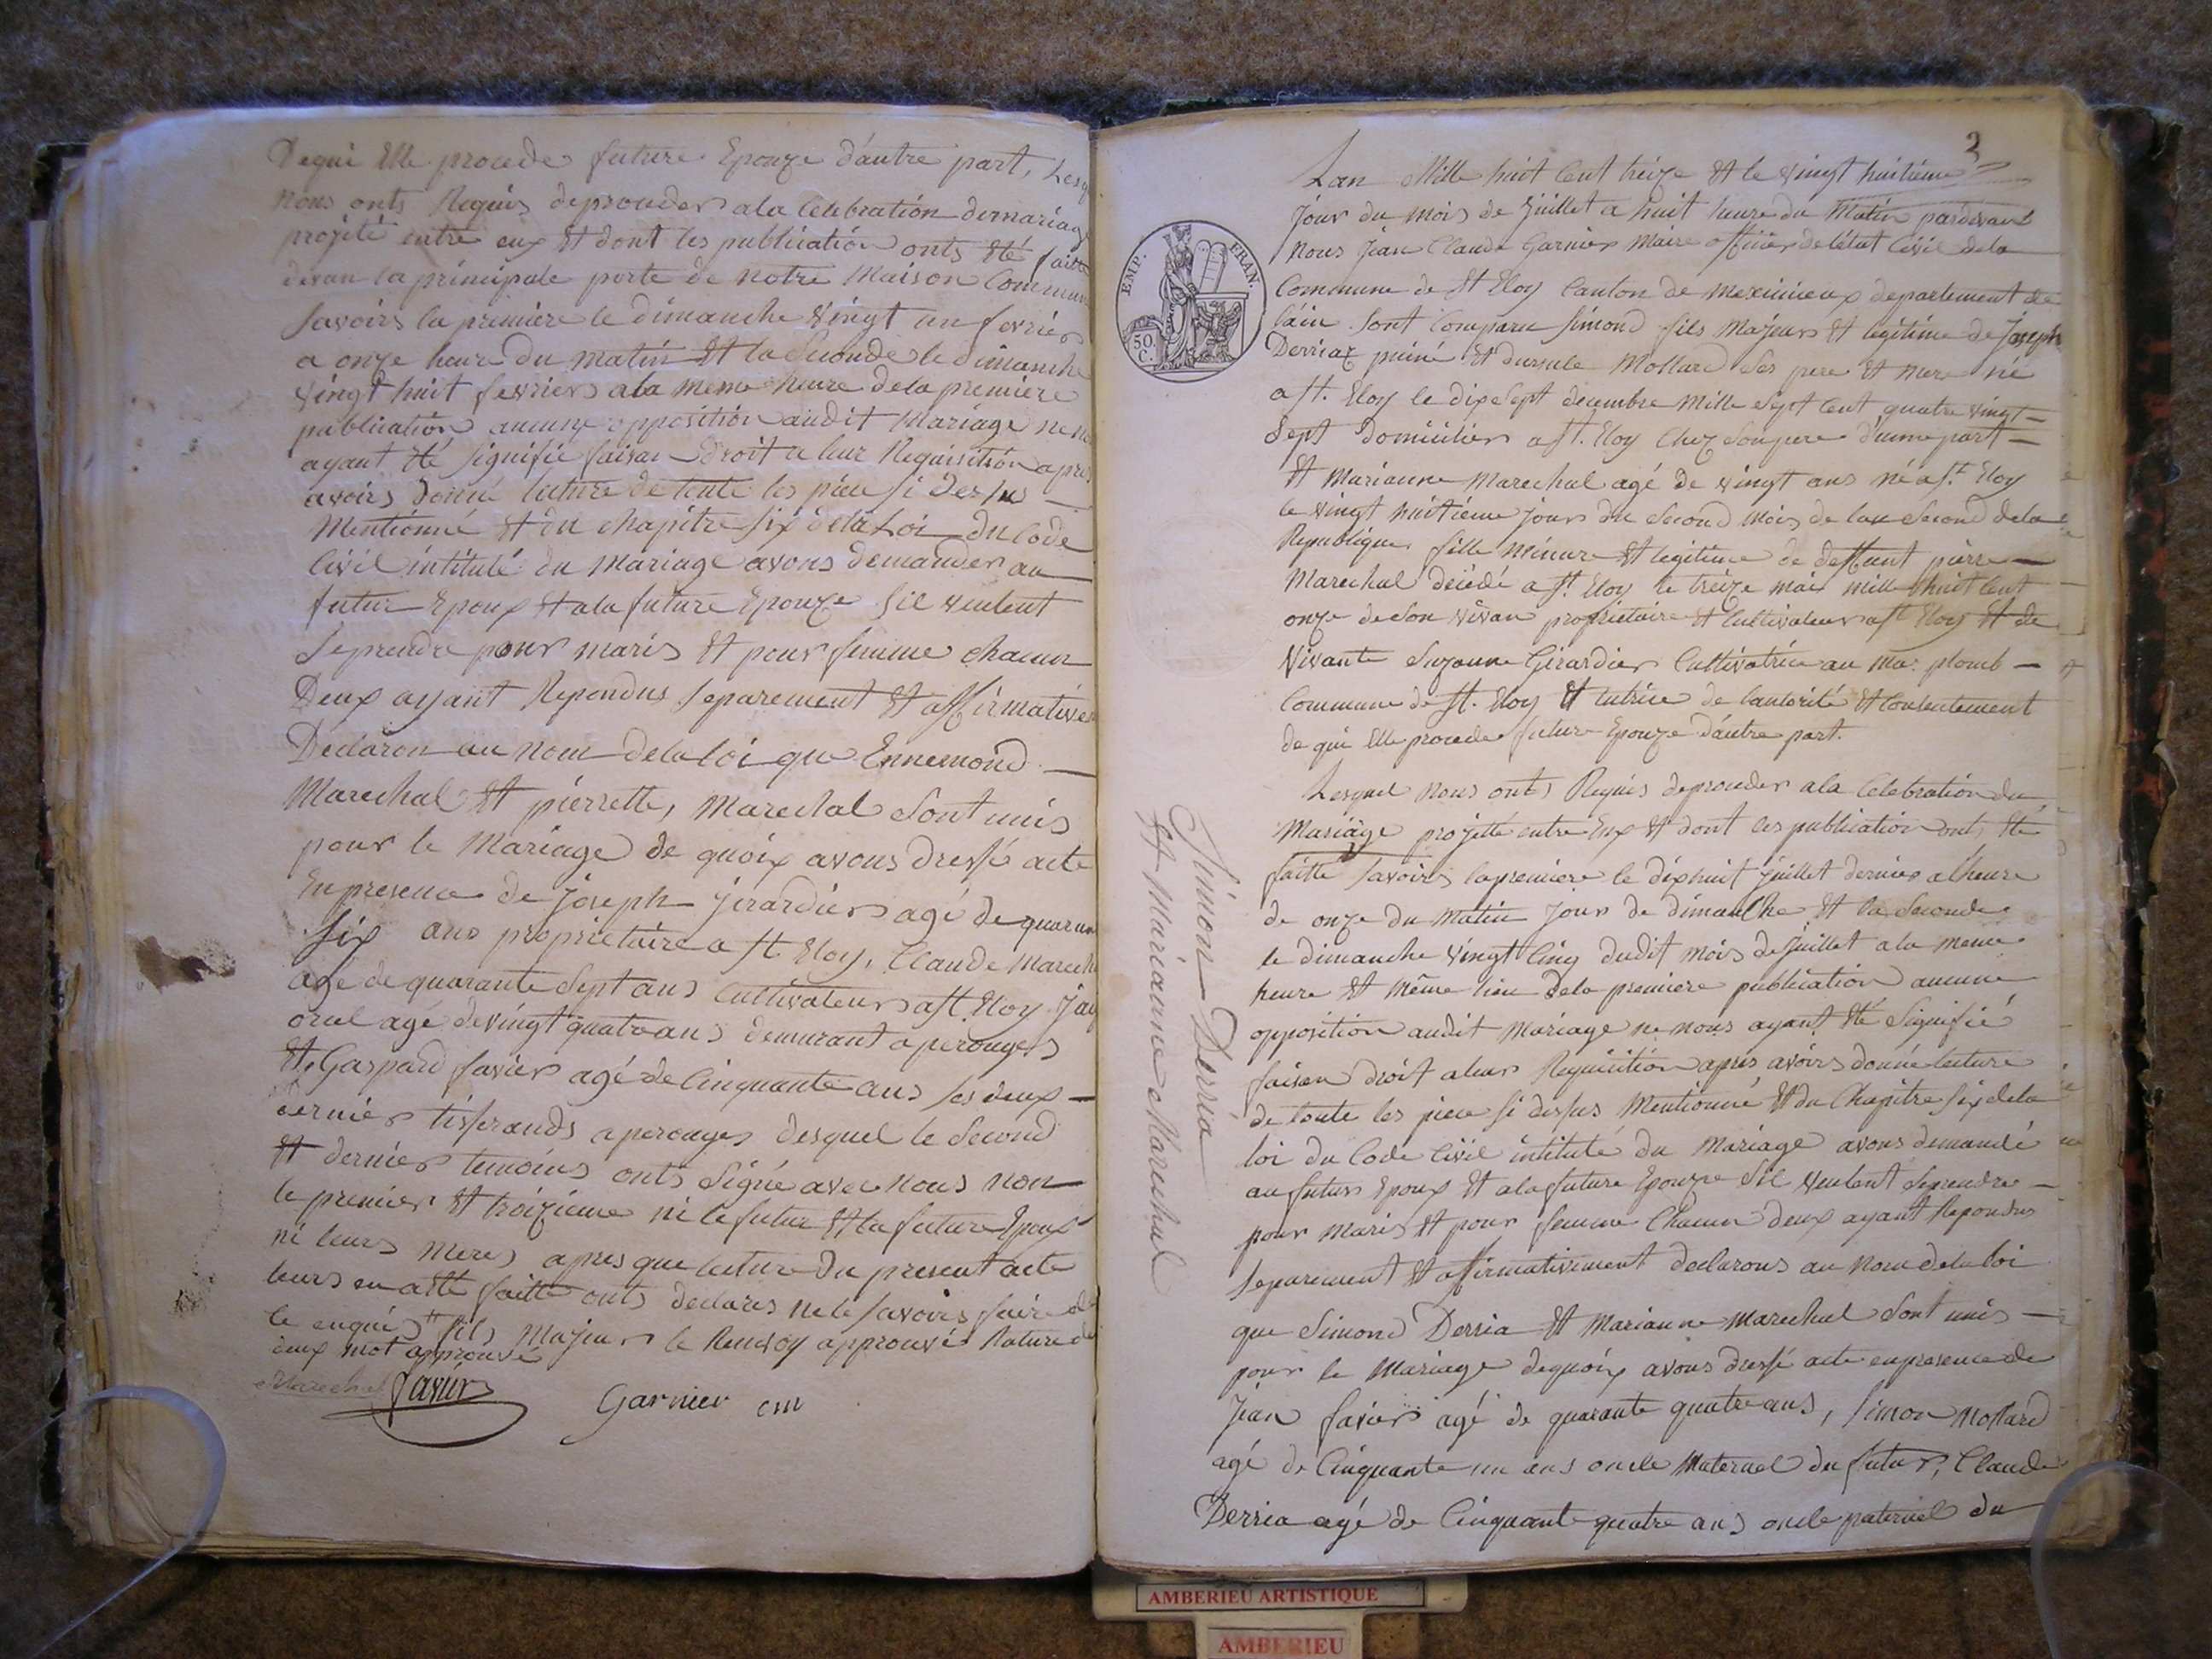 De qui Elle procede future Epouze d'autre part, Lesq
nous onts Requis de proceder a la Celebration du mariage
projeté entre eux et dont les publication onts été faitte
devan la principale porte de notre Maison Commune
Savoirs la premiere le dimanche vingt un fevrier
a onze heure du matin et la Seconde le dimanche
vingt huit fevriers a la meme heure de la premiere
publication aucune opposition audit Mariage ne n
ayant été Signifié faisan droit a leur Requisition apres
avoirs donné lecture de toute les piece si dessus
Mentionné et du chapitre six de la Loi du Code
Civil intitulé du Mariage avons demander au
futur Epoux et a la future Epouze Sil veulent
Se prendre pour maris et pour femme chacun
Deux ayant Repondus Separement et affirmative
Declaron au nom de la loi que Ennemond
Marechal et pierrette, Marechal Sont unis
pour le Mariage de quoix avons dressé acte
En presence de Joseph jirardiers agé de quaran
Six ans proprietaire a st Eloy, Claude Marech
age de quarante Sept ans Cultivateurs a st. Eloy Jaq
agé de vingt quatre ans demurant a perouges
et Gaspard favier agé de Cinquante ans les deux
dernier tisserands a perouges desquel le Second
et dernier temoins onts Signé avec nous non
le premier et troizieme ni le futur et la future Epoux
ni leurs meres apres que lecture du present acte
leurs en a été faitte onts declares ne le savoirs faire de
le enquis fils Majeurs le Renvoy approuvé Rature de
deux mot approuvé
Marechal favier
Garnier
3
EMP. FRAN.
50. C.
Lan Mille huit Cent treize et le vingt huitieme
Jour du mois de Juillet a huit heure du Matin pardevant
Nous Jean Claude Garnier Maire officier de l'état Civil de la
Commune de St Eloy Canton de Meximieux departement de
lain Sont Comparu Simond fils Majeurs et legitime de Joseph
Derriaz puiné et dursule Mollard Ses pere et mere né
a st. Eloy le dix Sept decembre Mille Sept Cent quatre vingt
Sept Domicilier a st. Eloy Chez Son pere d'une part
et Marianne Marechal agé de vingt ans né a st Eloy
le vingt huitieme jours du Second mois de lan Second de la
Republique fille Mineure et legitime de deffunt pierre
Marechal décédé a st. Eloy le treize mai mille huit Cent
onze de Son vivan proprietaire et Cultivateur a st Eloy et de
Vivante Suzanne Girardier Cultivatrice au Ma. plomb
Commune de st. Eloy et tutrice de l'autorité et Consentement
de qui Elle procede future Epouze d'autre part.
Simon Derria
et Marianne Marechal
Lesquel nous onts Requis de proceder a la Celebration du
Mariage projetté entre Eux et dont les publication onts été
faitte Savoirs la premiere le dix huit juillet dernier a lheure
de onze du Matin jour de dimanche et la Seconde
le dimanche vingt Cinq dudit mois de Juillet a la meme
heure et même lieu de la premiere publication aucune
opposition audit Mariage ne nous ayant été Signifié
faisan droit a leur Requisition après avoirs donné lecture
de toute les piece si dessus Mentionné et du Chapitre six de la
loi du Code Civil intitulé du Mariage avons demandé
au futurs Epoux et a la future Epouze Sil veulent Se prendre
pour Maris et pour femme Chacun deux ayant Repondus
Separement et affirmativement declarons au nom de la loi
que Simond Derria et Marianne Marechal Sont unis
pour le Mariage de quoix avons dressé acte en presence de
Jean favier agé de quarante quatre ans, Simon Mollard
agé de Cinquante un ans oncle Maternel du futur, Claude
Derria agé de Cinquante quatre ans oncle paternel du
AMBERIEU ARTISTIQUE
AMBERIEU